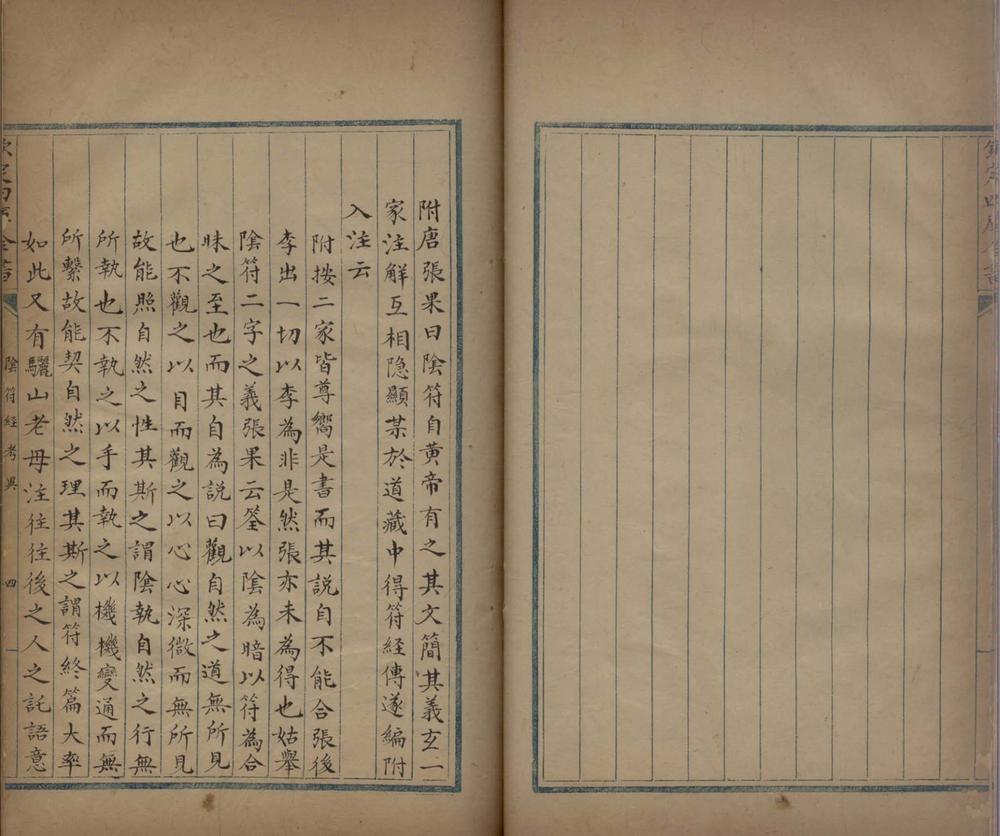 欽定四庫全書
附唐張果曰陰符自黄帝有之其文簡其義玄一
家注解互相隐顯某於道藏中得符經傳遂編附
入注云
附按二家皆尊嚮是書而其說自不能合張後
李出一切以李為非是然張亦未為得也姑舉
陰符二字之義張果云筌以陰為暗以符為合
昧之至也而其自為說曰觀自然之道無所見
也不觀之以目而觀之以心心深微而無所見
故能照自然之性其斯之謂陰執自然之行無
所執也不執之以手而執之以機機變通而無
所繫故能契自然之理其斯之謂符終篇大率
如此又有驪山老母注往往後之人之託語意
欽定四庫全書
陰符經考異
四